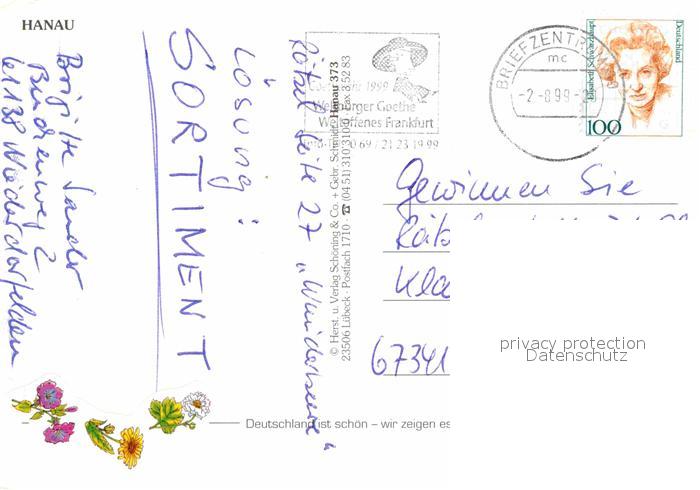 HANAU
Brigitte Sander
Buchenweg 2
61138 Niederdorfelden
Lösung:
SORTIMENT
Rätsel Seite 27 „Wunderseene“
© Herst. u. Verlag Schöning & Co. + Gebr. Schmidt Hanau 373
23506 Lübeck · Postfach 1710 · ☎ (04 51) 310 310 Fax 8 52 83
1999
Weltbürger Goethe
Weltoffenes Frankfurt
0 69 / 21 23 19 99
BRIEFZENTRUM
mc
-2.-8.99-
Deutschland
Elisabeth Schwarzhaupt
100
Gewinnen Sie
Räts
Kla
67341
privacy protection
Datenschutz
Deutschland ist schön – wir zeigen es